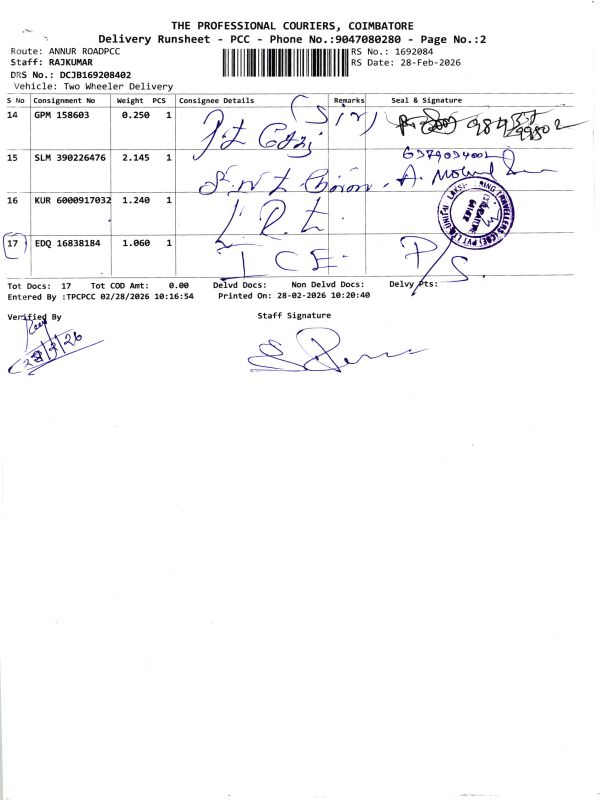 THE PROFESSIONAL COURIERS, COIMBATORE
Delivery Runsheet - PCC - Phone No.:9047080280 - Page No.:2
Route: ANNUR ROADPCC RS No.: 1692084
Staff: RAJKUMAR RS Date: 28-Feb-2026
DRS No.: DCJB169208402
Vehicle: Two Wheeler Delivery
S No Consignment No Weight PCS Consignee Details Remarks Seal & Signature
14 GPM 158603 0.250 1 (Sir)
15 SLM 390226476 2.145 1
16 KUR 6000917032 1.240 1 L.R.L.
17 EDQ 16838184 1.060 1 I C E. P/S.
Tot Docs: 17 Tot COD Amt: 0.00 Delvd Docs: Non Delvd Docs: Delvy Pts:
Entered By :TPCPCC 02/28/2026 10:16:54 Printed On: 28-02-2026 10:20:40
Verified By Staff Signature
28/2/26